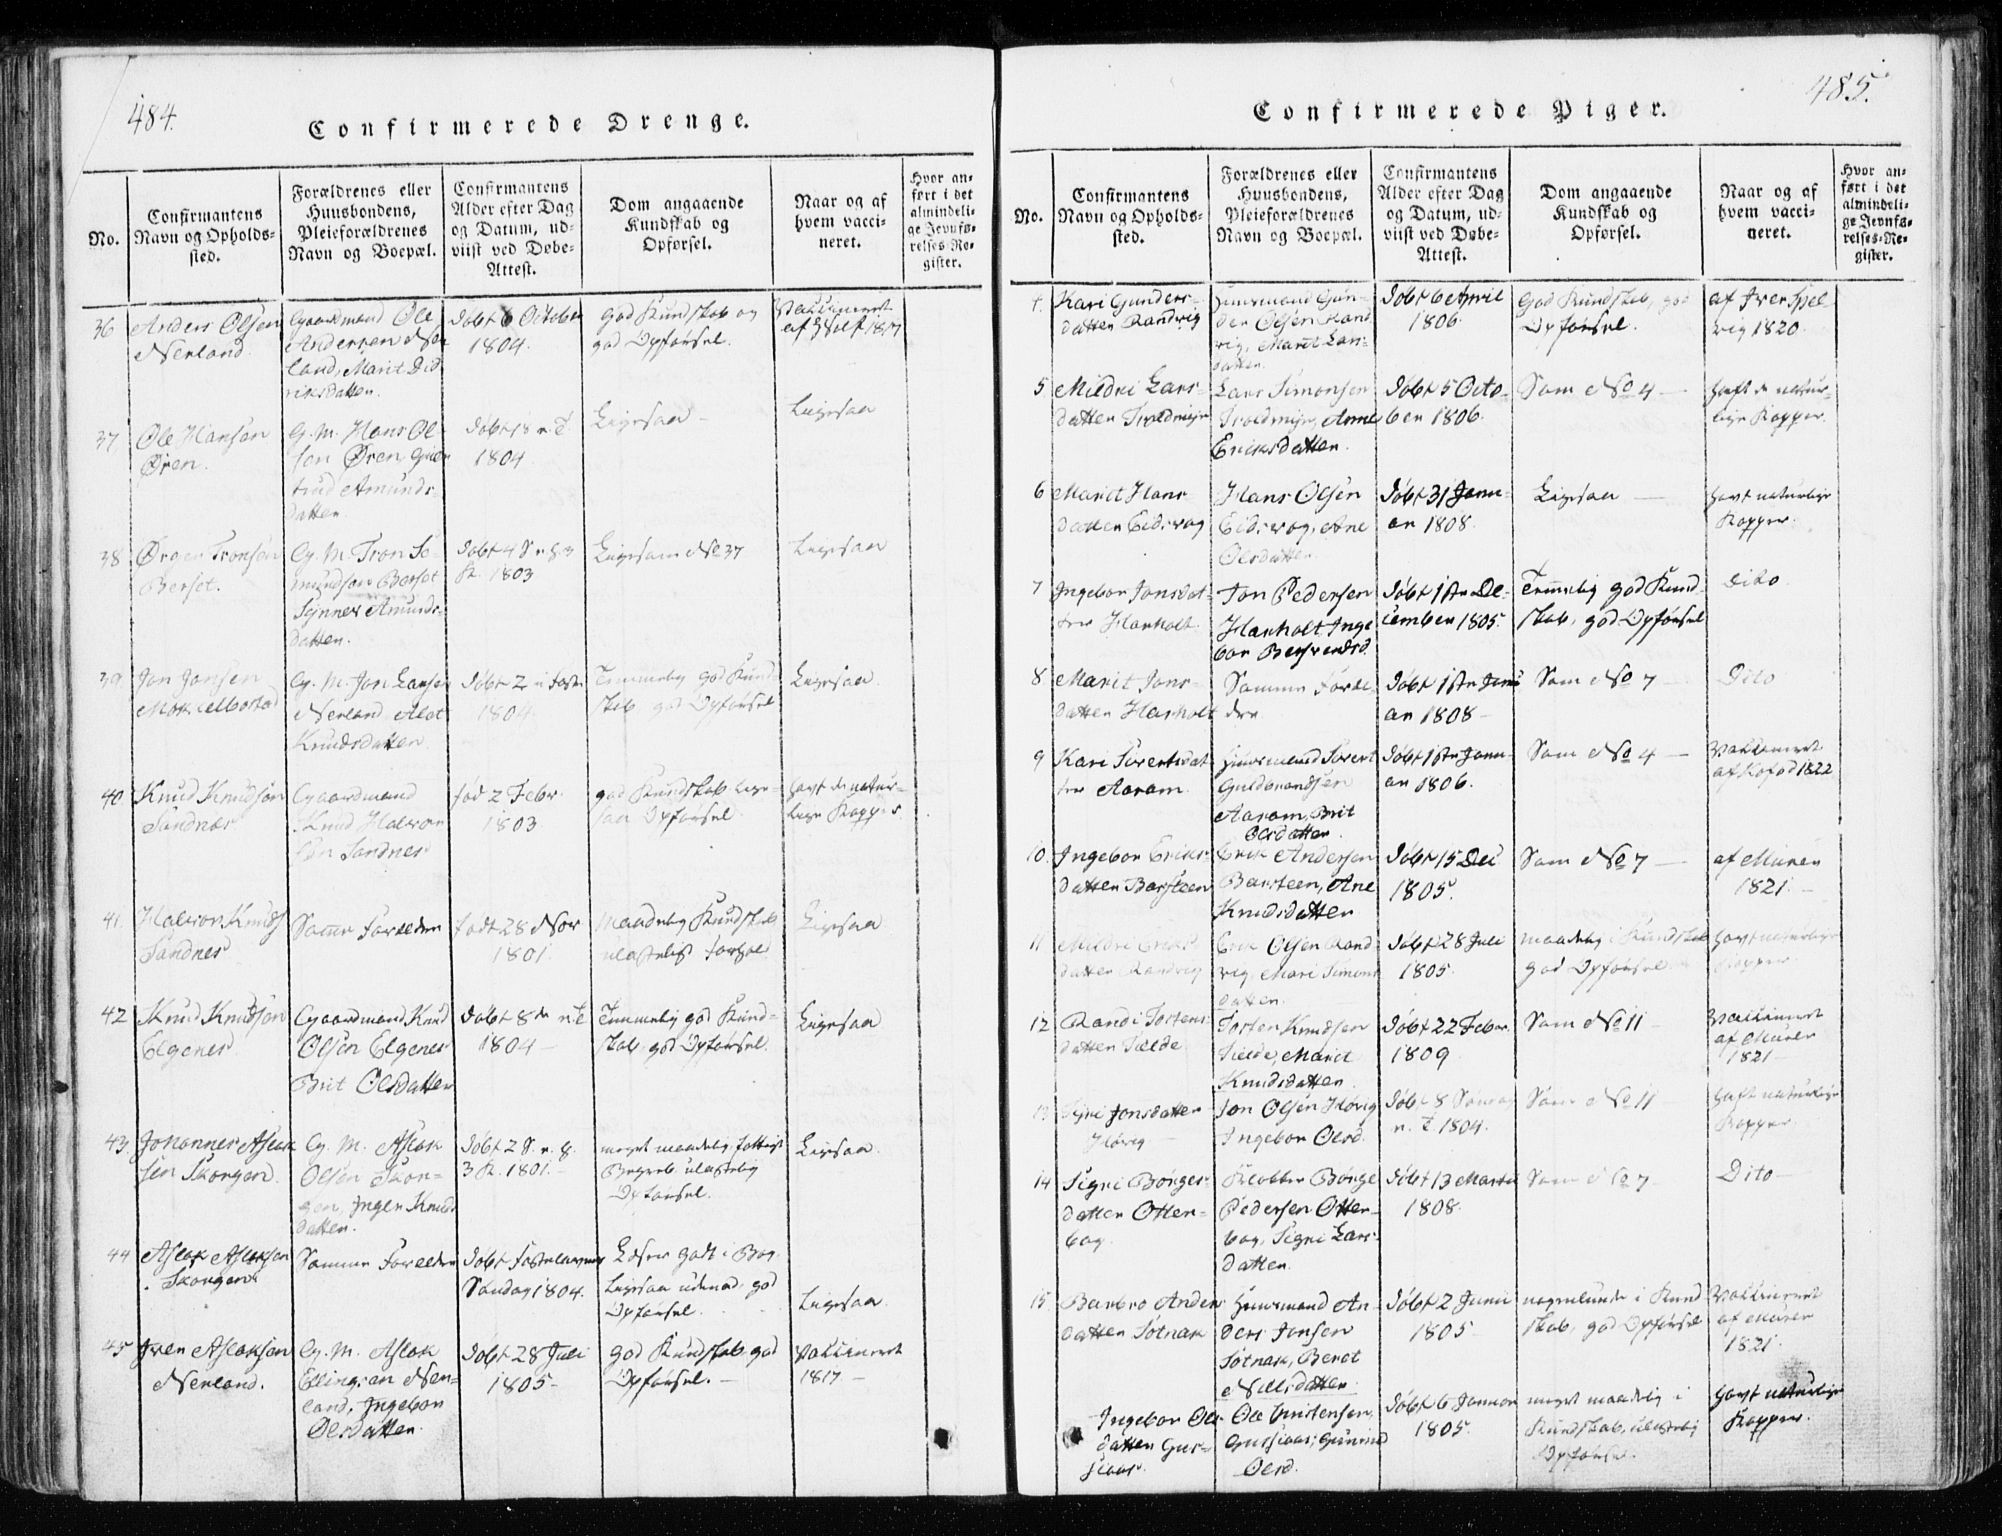 484.
Confirmerede Drenge.
No.
Confirmantens
Navn og Opholds-
sted.
Forældrenes eller
Huusbondens,
Pleieforældrenes
Navn og Boepæl.
Confirmantens
Alder efter Dag
og Datum, ud-
viist ved Døbe-
Attest.
Dom angaaende
Kundskab og
Opførsel.
Naar og af
hvem vacci-
neret.
Hvor an-
ført i det
almindeli-
ge Jevnfø-
relses-Re-
gister.
36
Anders Olsen
Nerland.
Gaardmand Ole
Andersen Ner
land, Marit Did
riksdatten.
Døbt 6 October
1804.
god Kundskab og
god Opførsel.
Vaccineret
1817
37
Ole Hansen
Øren.
G. M. Hans Ol
sen Øren
trud Amunds-
datten
Døbt 18 n. T
1804.
Ligesaa
Ligesaa
38
Ørgen Tronsøn
Berset.
G. M. Tron
Berset
Amunds-
datten.
Døbt 4 S n h 3
K. 1803
Ligesom No 37
Ligesaa
39
Jon Jonsen
G. M. Jon Larsen
Nerland
Knudsdatten
Døbt 2 i Fast.
1804.
Temmelig god Kund
skab god Opførsel
Ligesaa.
40
Knud Knudsøn
Sandnes
Gaardmand
Knud Halvor
søn Sandnes
fød 2 Febr.
1803
god Kundskab lige-
saa Opførsel.
havt de natur-
lige Kopper
41.
Halvor Knuds
Sandnes
Samme Forældre
født 28 Nov
1801.
Maadelig Kundskab
ulastelig Forhold
Ligesaa
42
Knud Knudsøn
Elgenes
Gaardmand Knud
Olsen Elgenes
Brit Olsdatten
Døbt 8de n. T
1804
Temmelig god Kund-
skab god Opførsel.
Ligesaa
43.
Johannes Aslak
sen Skorgen.
G. M. Aslak
Olsen Skor-
gen, Inger Knuds
datten.
Døbt 2 S. n. h.
3 K. 1801.
meget maadelig fattigt
Begreb ulastelig
Opførsel.
Ligesaa.
44
Aslak Aslaksen
Skorgen
Samme Forældre
Døbt Fastelavns
Søndag 1804.
Læser godt i Bog
Ligesaa udenad god
Opførsel.
Ligesaa.
45
Iver Aslaksen
Nerland.
G. M. Aslak
Ellingsen Ner-
land, Ingebor
Olsdatten.
Døbt 28 Juli
1805
God Kundskab god
Opførsel.
Vaccineret
1817
485.
Confirmerede Piger.
No.
Confirmantens
Navn og Opholds-
sted.
Forældrenes eller
Huusbondens,
Pleieforældrenes
Navn og Boepæl.
Confirmantens
Alder efter Dag
og Datum, ud-
viist ved Døbe-
Attest.
Dom angaaende
Kundskab og
Opførsel.
Naar og af
hvem vacci-
neret.
Hvor an-
ført i det
almindeli-
ge Jevnfø-
relses-Re-
gister.
4.
Kari Gunders-
datten Randvig
Huusmand Gun-
der Olsen Rand
vig, Marit Lars-
datten.
Døbt 6 April
1806.
God Kundskab, god
Opførsel.
af Iver
1820.
5
Mildri Lars-
datten Troldmyr
Lars Simonsen
Troldmyr, Anne
Eriksdatten.
Døbt 5 Octo-
ber 1806.
Som No 4
haft de natur-
lige Kopper.
6
Marit Hans-
datten Eidsvog
Hans Olsen
Eidsvog, Ane
Olsdatten
Døbt 31 Janu-
ar 1808.
Ligesaa
havt naturlige
Kopper.
7
Ingebor Jonsdat-
ter Harholt
Jon Pedersen
Harholt Inge
bor
Døbt 1ste De-
cember 1805.
Temmelig god Kund
skab, god Opførsel
Dito
8
Marit Jons-
datten Harholt
Samme Foræl-
dre
Døbt 1ste Janu
ar 1808
Som No 7
Dito
9
Kari Sivertsdat
ter Aaram.
Huusmand Sivert
Guldbrandsen
Aaram, Brit
Olsdatten
Døbt 1ste Janu-
ar 1806.
Som No 4
Vaccineret
af Kofod 1822
10.
Ingebor Eriks-
datten Barsteen
Erik Andersen
Barsteen, Ane
Knudsdatten
Døbt 15 Dec
1805.
Som No 7
af Maurer
1821.
11
Mildri Eriks
datten Randvig
Erik Olsen Rand-
vig, Mari Simons
datten.
Døbt 28 Juli
1805.
maadelig i Kundskab
god Opførsel
havt naturlige
Kopper.
12
Randi Tostens-
datten Tielde
Tosten Knudsen
Tielde, Marit
Knudsdatten
Døbt 22 Febr.
1809
Som No 11
Vaccineret
af Maurer
1821
13.
Jonsdatten
Høvig
Jon Olsen Høvig
Ingebor Olsd.
Døbt 8 Søndag
n. T. 1804.
Som No 11
haft naturlige
Kopper
14
Signi Børges-
datten Otter-
bog
Børge
Pedersen Otter-
bog, Signi Lars-
datten.
Døbt 13 Marts
1808.
Som No 7
Dito
15.
Barbro Anders
datten Sotnak
Huusmand An-
ders Jonsen
Sotnak, Beret
Nilsdatten
Døbt 2 Juni
1805
nogenlunde i Kund
skab, god Opførsel
Vaccineret
af Maurer
1821.
Ingebor Ols-
datten Gus-
siaas.
Ole Cristensen
Gussiaas,
Olsd.
Døbt 6 Januar
1805.
meget maadelig i
Kundskab, ulastelig
Opførsel.
havt naturlige
Kopper.